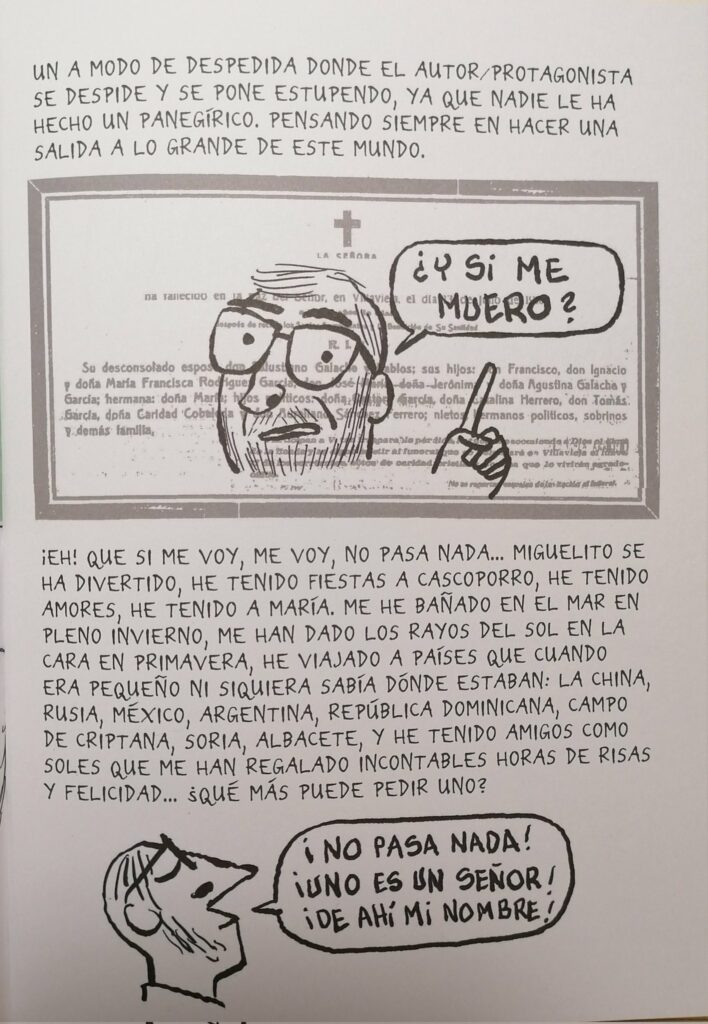 UN A MODO DE DESPEDIDA DONDE EL AUTOR/PROTAGONISTA
SE DESPIDE Y SE PONE ESTUPENDO, YA QUE NADIE LE HA
HECHO UN PANEGÍRICO. PENSANDO SIEMPRE EN HACER UNA
SALIDA A LO GRANDE DE ESTE MUNDO.
LA SEÑORA
¿Y SI ME
MUERO?
ha fallecido en la Paz del Señor, en Villavieja, el día
R. I.
Su desconsolado esposo, don sus hijos: Francisco, don Ignacio
y doña María Francisca Rodríguez García, don José doña Jerónima doña Agustina Galacha y
García; hermana: doña María; hijos políticos: García, doña Catalina Herrero, don Tomás
García, doña Caridad Sánchez Ferrero; nietos, hermanos políticos, sobrinos
y demás familia,
¡EH! QUE SI ME VOY, ME VOY, NO PASA NADA... MIGUELITO SE
HA DIVERTIDO, HE TENIDO FIESTAS A CASCOPORRO, HE TENIDO
AMORES, HE TENIDO A MARÍA. ME HE BAÑADO EN EL MAR EN
PLENO INVIERNO, ME HAN DADO LOS RAYOS DEL SOL EN LA
CARA EN PRIMAVERA, HE VIAJADO A PAÍSES QUE CUANDO
ERA PEQUEÑO NI SIQUIERA SABÍA DÓNDE ESTABAN: LA CHINA,
RUSIA, MÉXICO, ARGENTINA, REPÚBLICA DOMINICANA, CAMPO
DE CRIPTANA, SORIA, ALBACETE, Y HE TENIDO AMIGOS COMO
SOLES QUE ME HAN REGALADO INCONTABLES HORAS DE RISAS
Y FELICIDAD... ¿QUÉ MÁS PUEDE PEDIR UNO?
¡NO PASA NADA!
¡UNO ES UN SEÑOR!
¡DE AHÍ MI NOMBRE!